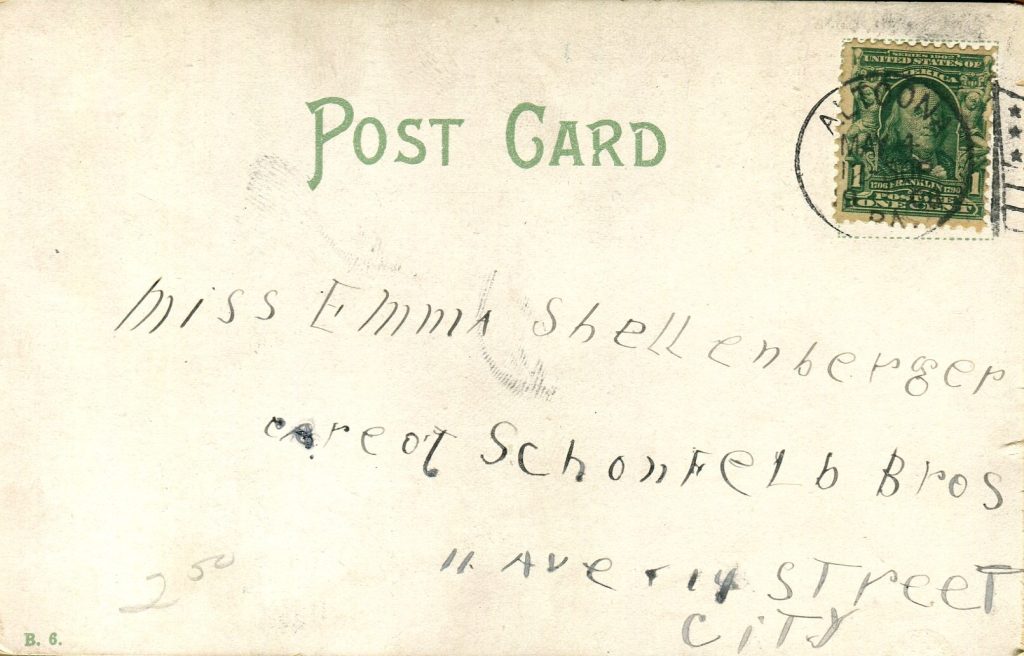 POST CARD
SERIES 1902
UNITED STATES OF
AMERICA
ALTOONA
MAY
PA.
1 1790 FRANKLIN 1790 1
POSTAGE
ONE CENT
Miss Emma Shellenberger
care of Schonfelb Bros
11 Ave. 14 Street
City
2 50
B. 6.